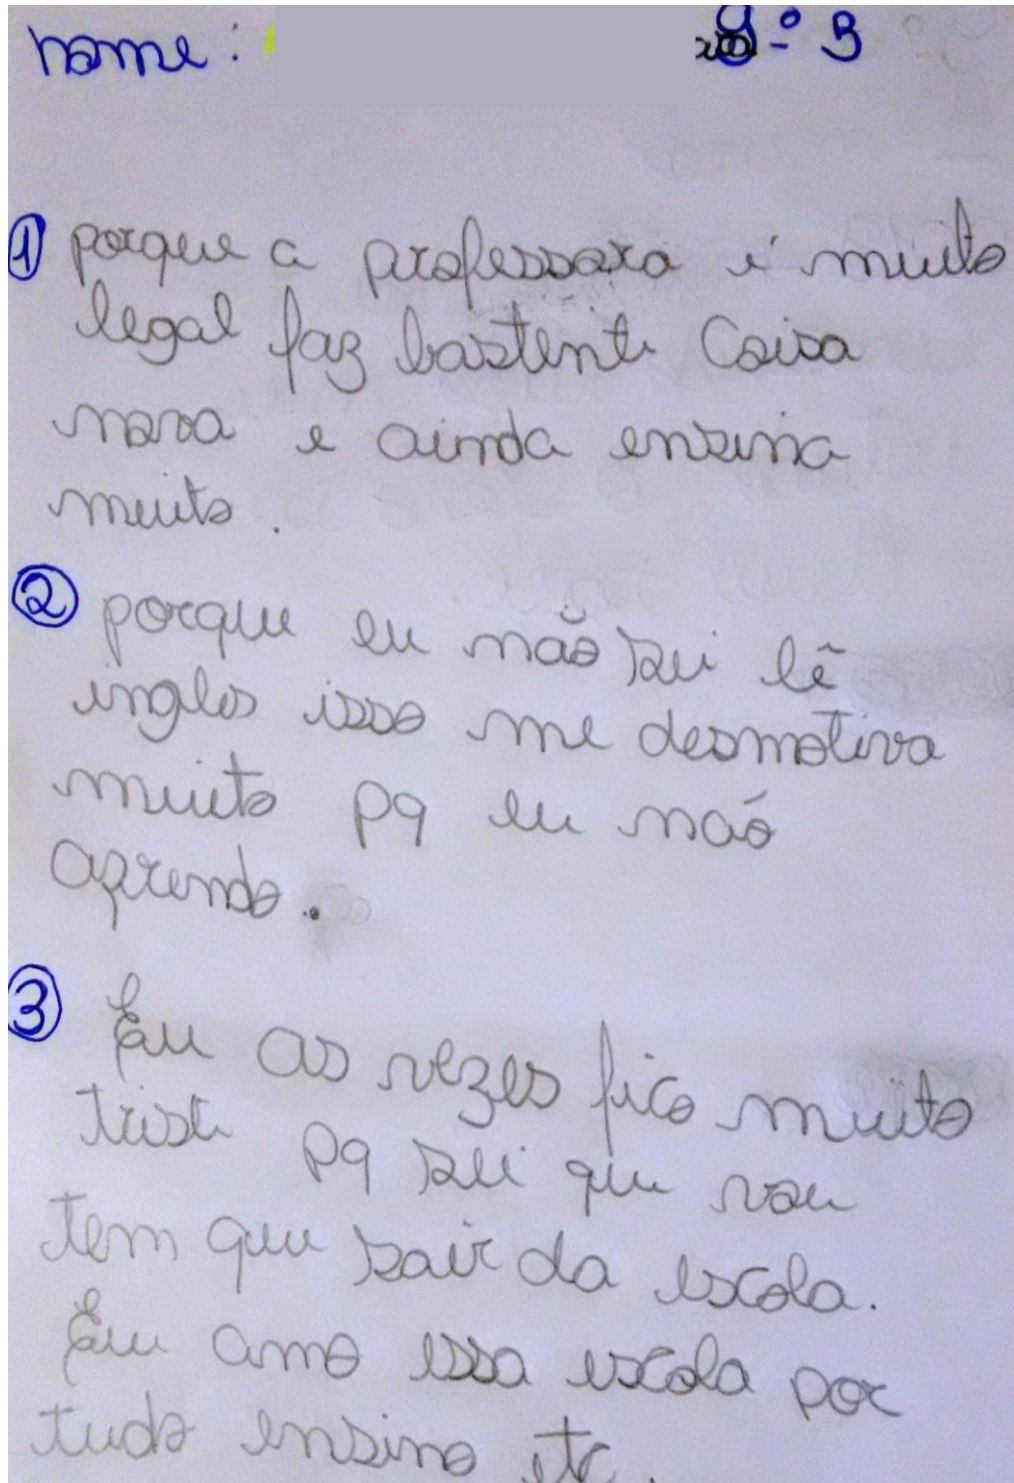 nome: 9º B
① porque a professora é muito
legal faz bastente Coisa
nova e ainda ensina
muito.
② porque eu não sei lê
ingles isso me desmotiva
muito pq eu naó
aprendo.
③ Eu as vezes fico muito
triste pq sei que vou
tem que sair da escola.
Eu amo essa escola por
tudo ensino etc.